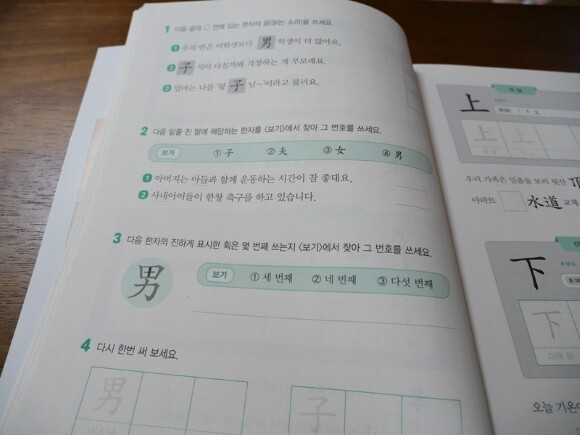 1 다음 글의 ○ 안에 있는 한자의 음(읽는 소리)을 쓰세요.
❶ 우리 반은 여학생보다 男 학생이 더 많아요.
❷ 子 식이 다칠까 봐 걱정하는 게 부모예요.
❸ 엄마는 나를 '왕 子 님~'이라고 불러요.
2 다음 밑줄 친 말에 해당하는 한자를 <보기>에서 찾아 그 번호를 쓰세요.
보기 ① 子 ② 夫 ③ 女 ④ 男
❶ 아버지는 아들과 함께 운동하는 시간이 참 좋대요.
❷ 사내아이들이 한창 축구를 하고 있습니다.
3 다음 한자의 진하게 표시한 획은 몇 번째 쓰는지 <보기>에서 찾아 그 번호를 쓰세요.
男
보기 ① 세 번째 ② 네 번째 ③ 다섯 번째
4 다시 한번 써 보세요.
男
子
上
上 上
우리 가족은 일출을 보러 뒷산 頂
아파트 水道 교체
下
下
오늘 기온이